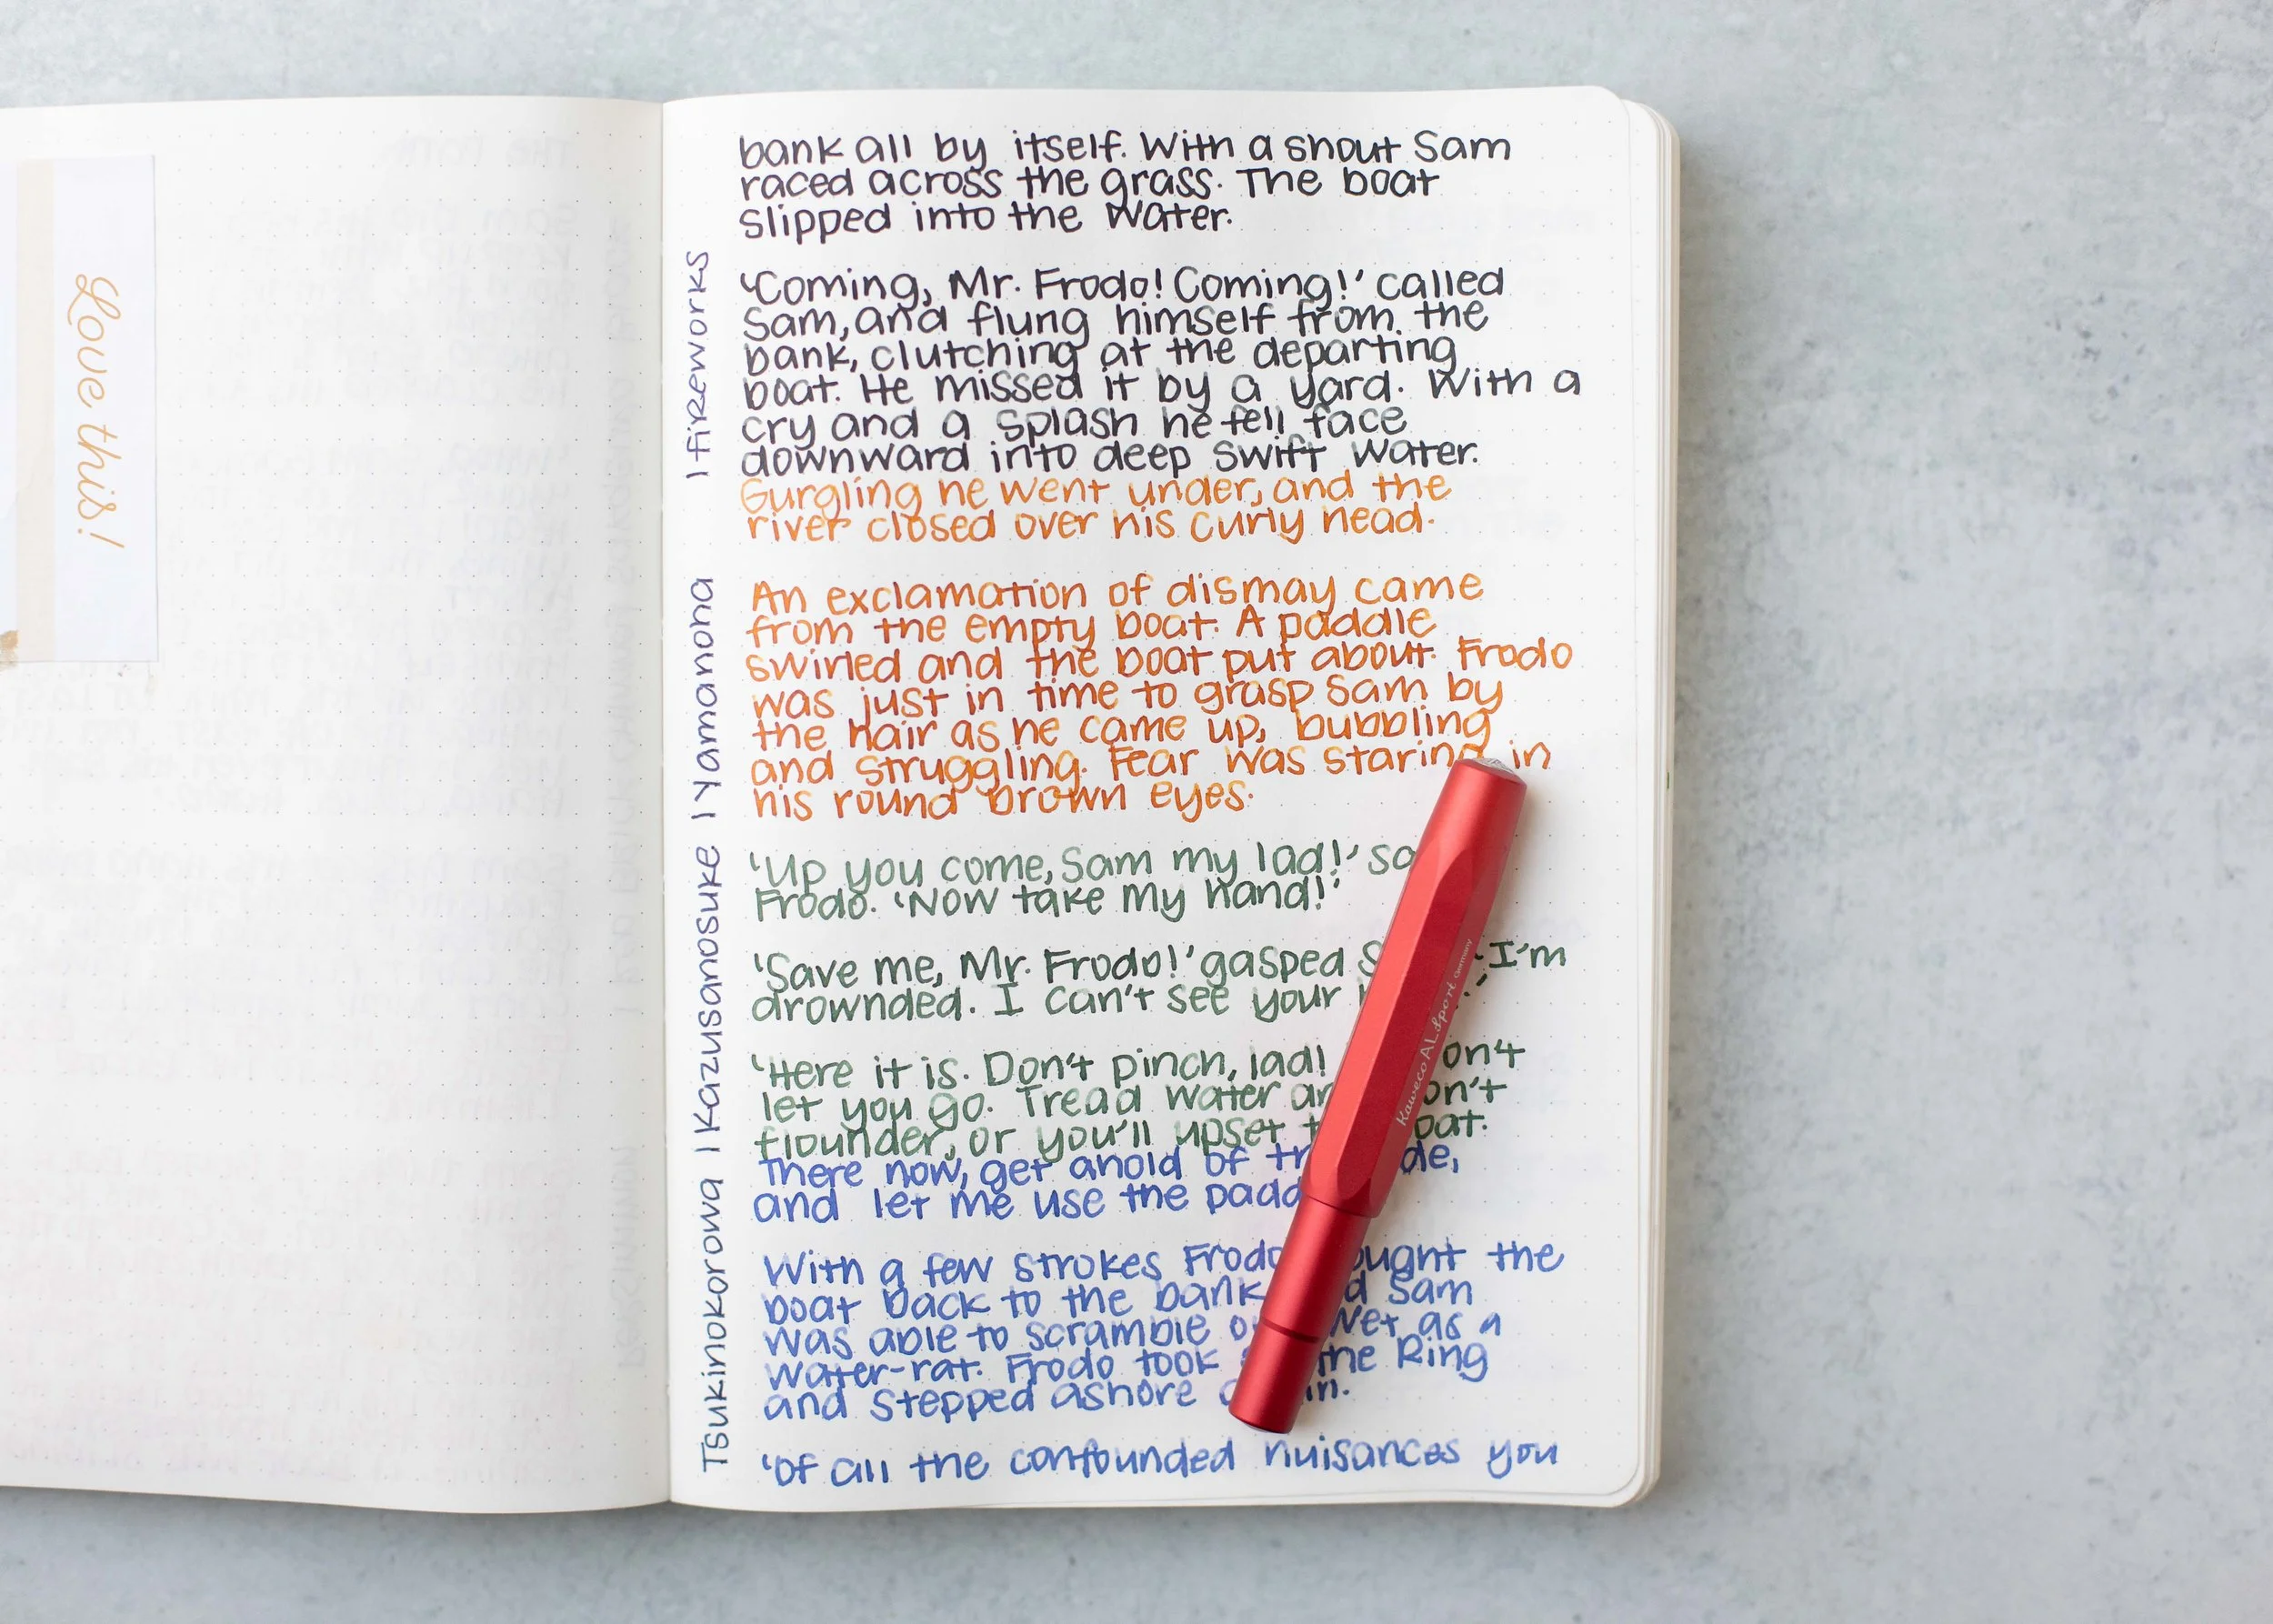 Love this!
bank all by itself. With a shout Sam
raced across the grass. The boat
slipped into the water.
'Coming, Mr. Frodo! Coming!' called
Sam, and flung himself from the
bank, clutching at the departing
boat. He missed it by a yard. With a
cry and a splash he fell face
downward into deep swift water.
Gurgling he went under, and the
river closed over his curly head.
An exclamation of dismay came
from the empty boat. A paddle
swirled and the boat put about. Frodo
was just in time to grasp Sam by
the hair as he came up, bubbling
and struggling. Fear was staring in
his round brown eyes.
'Up you come, Sam my lad!'
Frodo. 'Now take my hand!'
'Save me, Mr. Frodo!' gasped I'm
drownded. I can't see your
'Here it is. Don't pinch, lad!
let you go. Tread water
flounder, or you'll upset
There now, get ahold of
and let me use the
With a few strokes the
boat back to the bank Sam
was able to scramble wet as a
water-rat. Frodo took the Ring
and stepped ashore
'Of all the confounded nuisances you
Tsukinokorowa | Kazusanosuke | Yamanona | fireworks
Kaweco AL Sport Germany